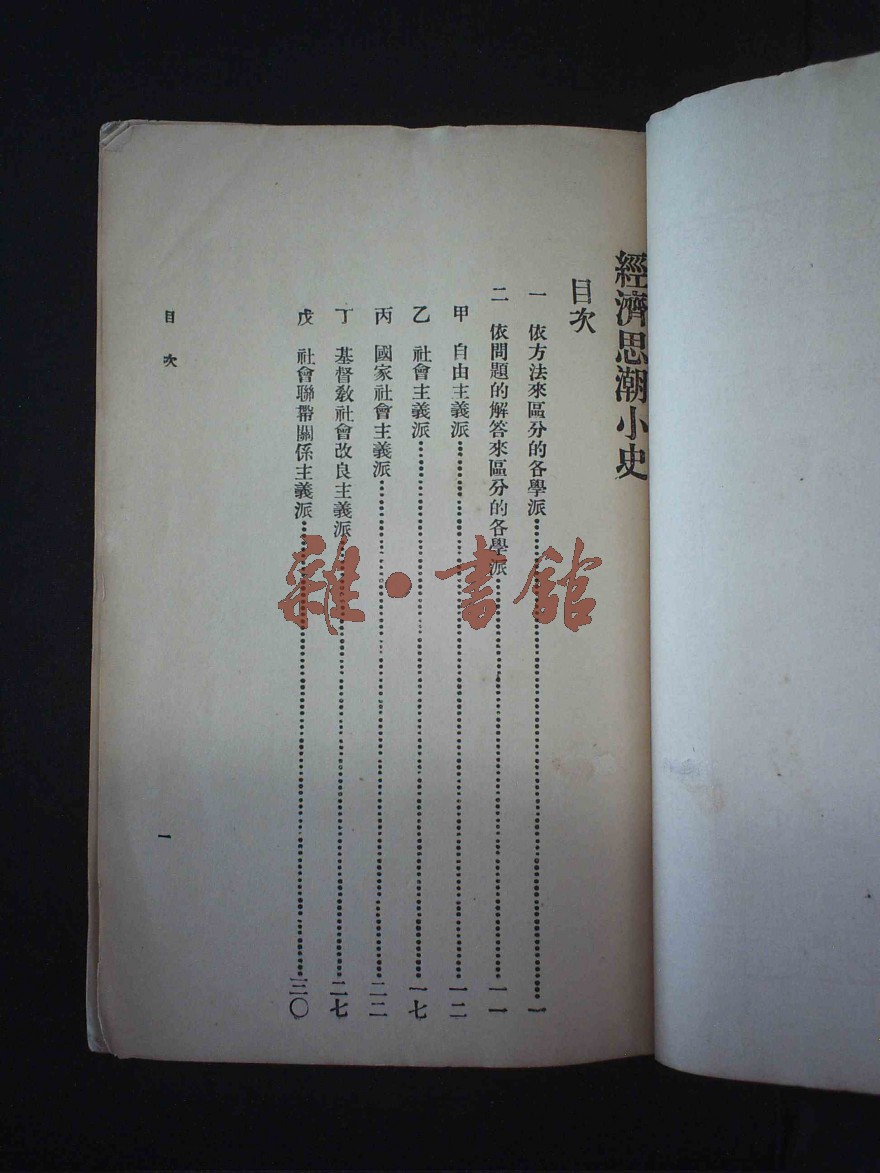 經濟思潮小史
目次
一 依方法來區分的各學派……一
二 依問題的解答來區分的各學派……一一
甲 自由主義派……一二
乙 社會主義派……一七
丙 國家社會主義派……二二
丁 基督教社會改良主義派……二七
戊 社會聯帶關係主義派……三〇
目次
一
雜·書館